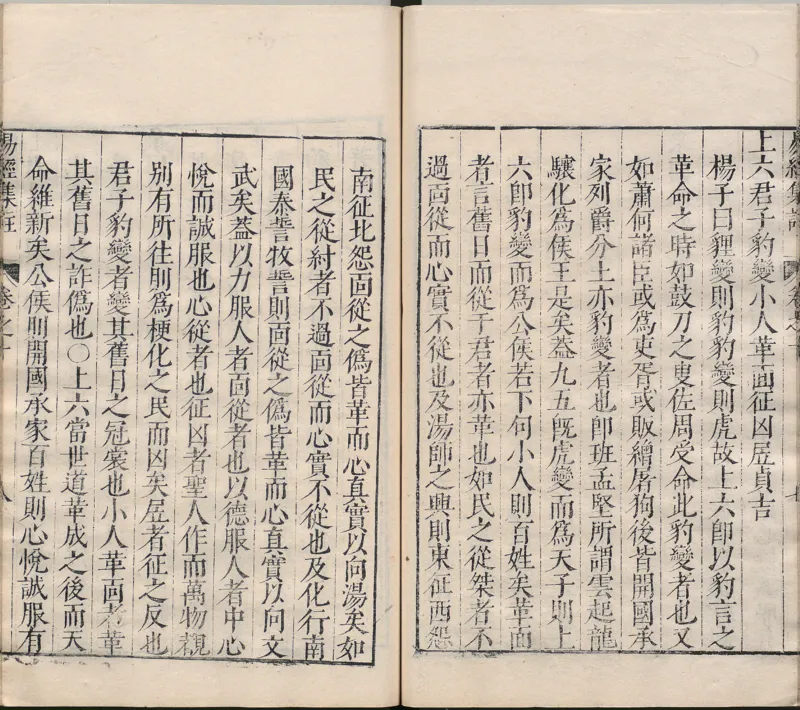 上六君子豹變小人革面征凶居貞吉
楊子曰貍變則豹豹變則虎故上六卽以豹言之
革命之時如鼓刀之叟佐周受命此豹變者也又
如蕭何諸臣或爲吏胥或販繒屠狗後皆開國承
家列爵分土亦豹變者也卽班孟堅所謂雲起龍
驤化爲侯王是矣葢九五旣虎變而爲天子則上
六卽豹變而爲公侯若下何小人則百姓矣革面
者言舊日而從于君者亦革也如民之從桀者不
過面從而心實不從也及湯師之興則東征西怨
南征北怨面從之僞皆革而心真實以向湯矣如
民之從紂者不過面從而心實不從也及化行南
國泰誓牧誓則面從之僞皆革而心真實以向文
武矣葢以力服人者面從者也以德服人者中心
悅而誠服也心從者也征凶者聖人作而萬物覩
别有所往則爲梗化之民而凶矣居者征之反也
君子豹變者變其舊日之冠裳也小人革面者革
其舊日之詐僞也〇上六當世道革成之後而天
命維新矣公侯則開國承家百姓則心悅誠服有
易經集註
卷之十
八